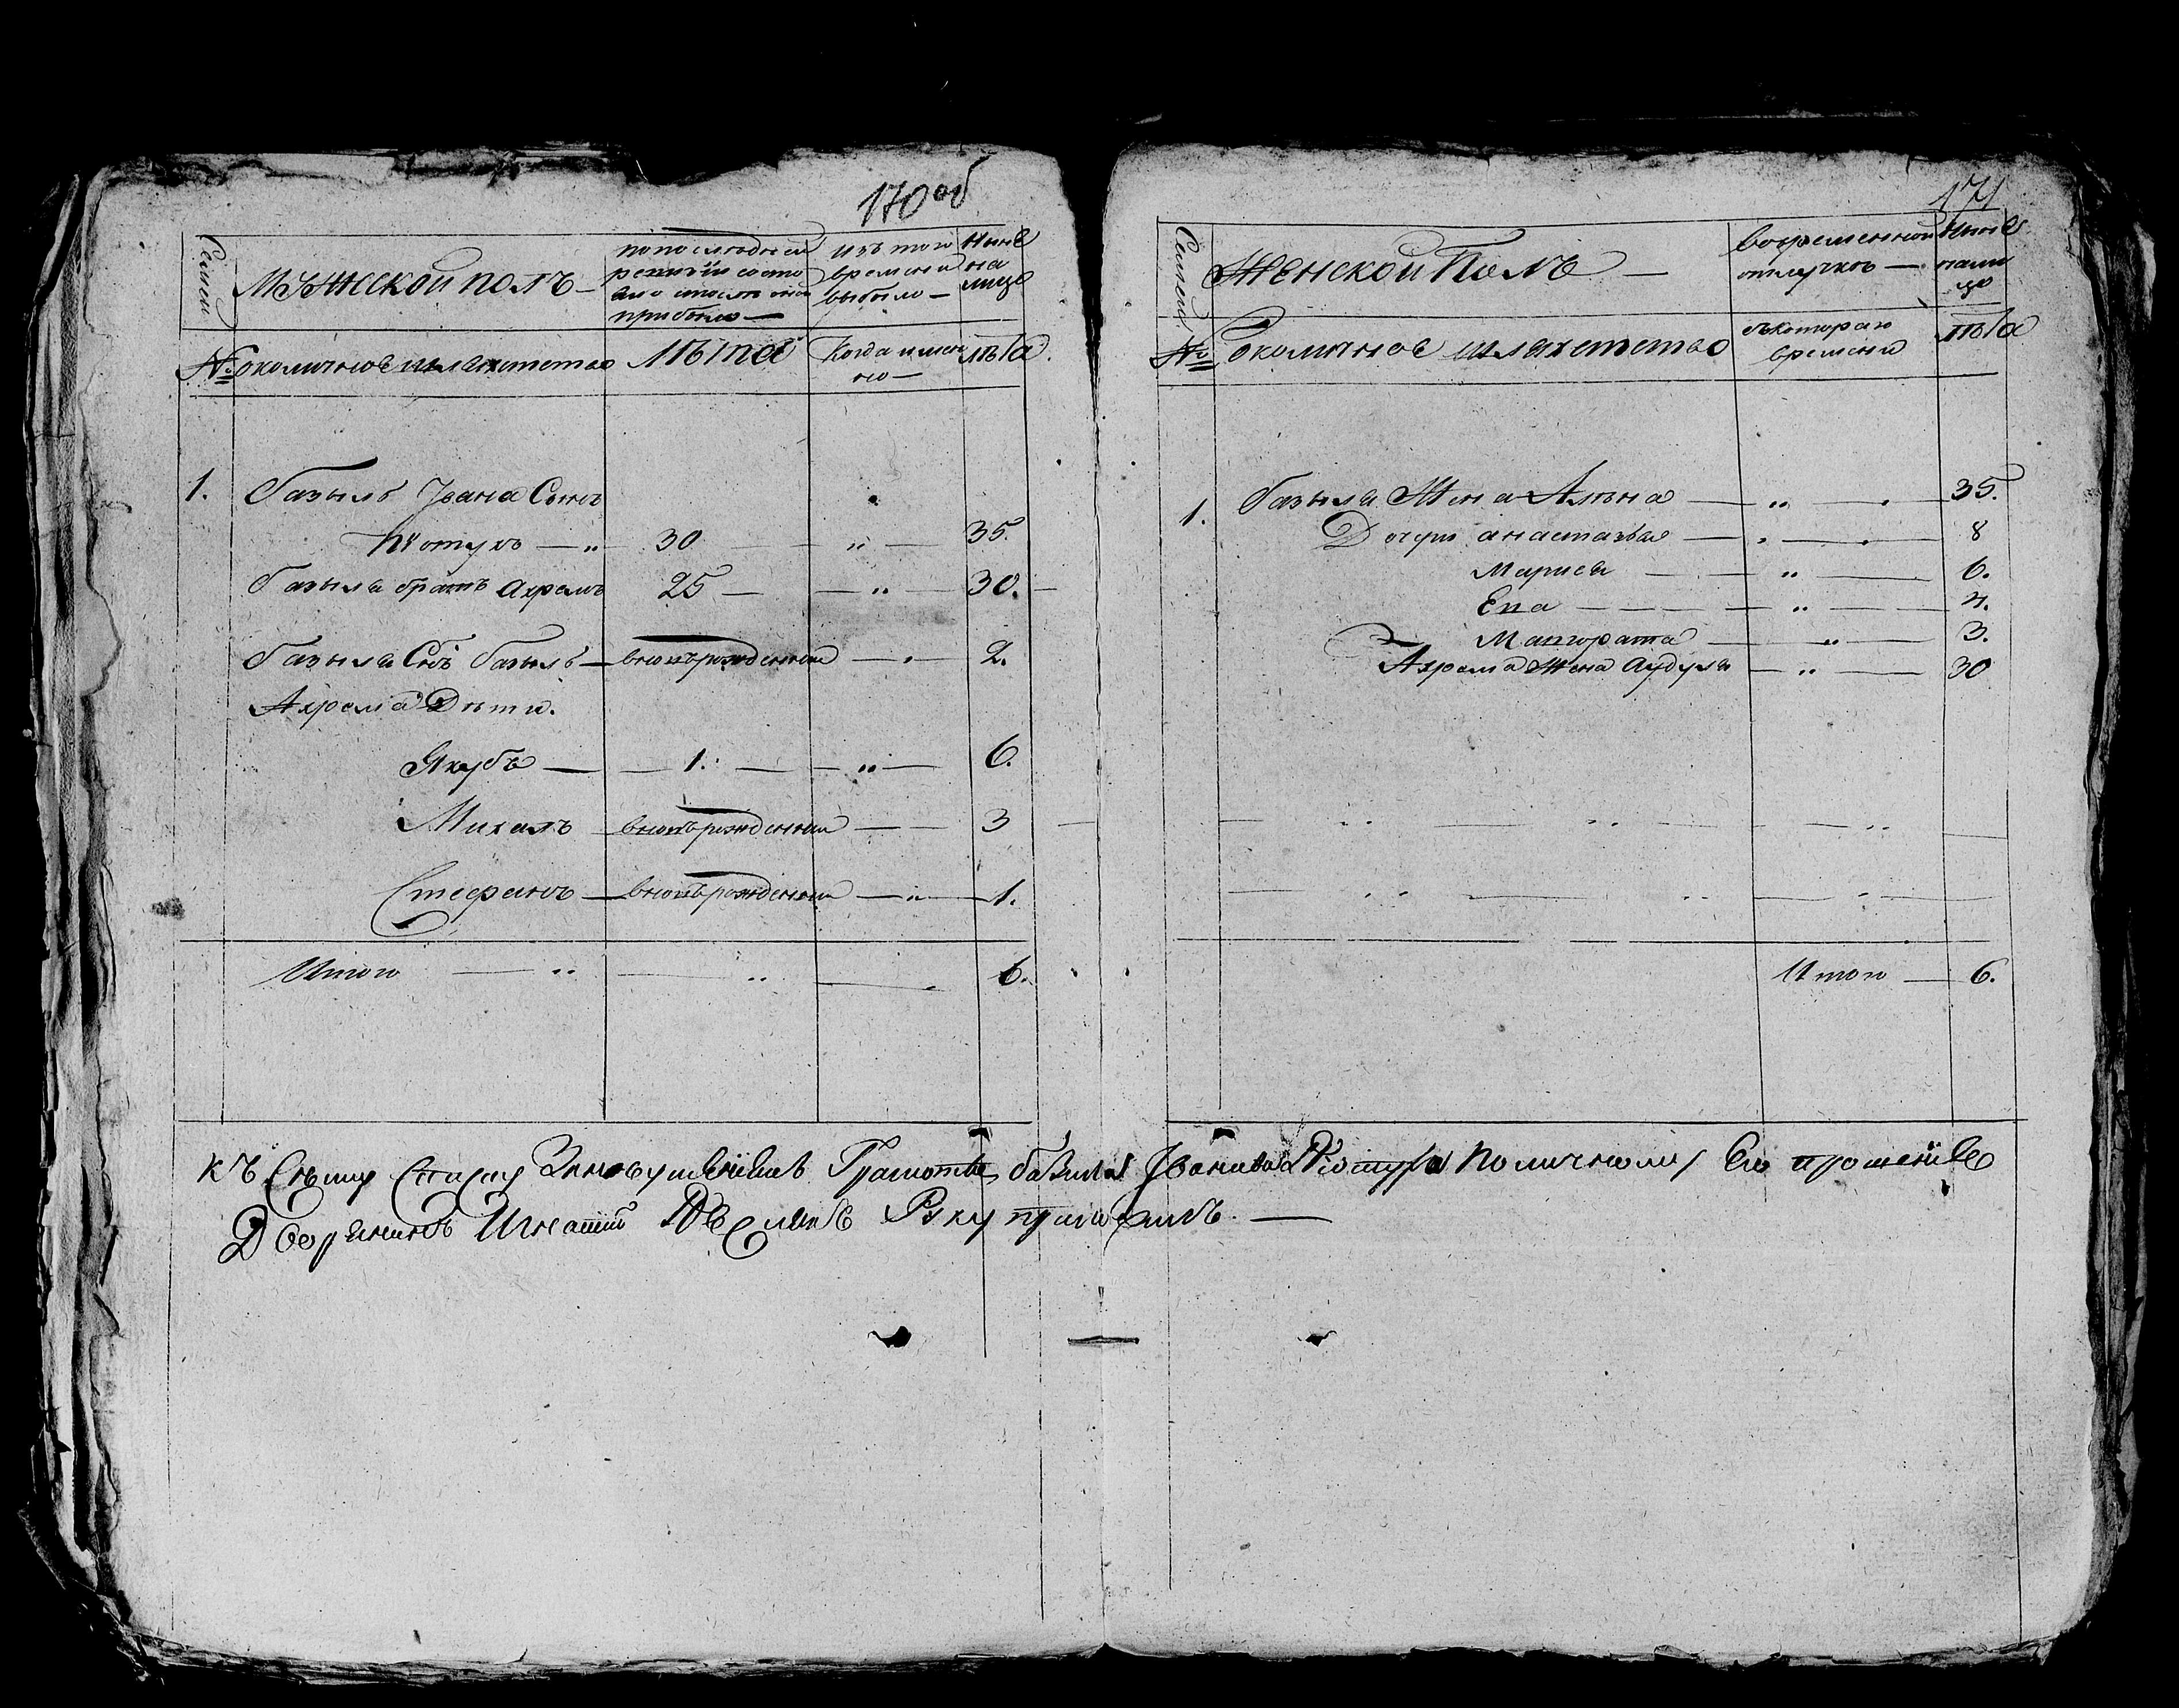 170 об
Семеи
Мужской полъ —
по последней ревизии состояло и после оной прибыло —
изъ того времени выбыло —
Ныне на лице
№ околичное шляхетство
лѣта
Когда имен но —
лѣта
1. Базыль Iвана Сынъ
Котухъ — „ 30 — „ — 35.
Базыля братъ Ахремъ 25 — — „ — 30. —
Базыля Снъ Базыль — вновърожденны — „ — 2.
Ахрема Дѣти.
Якубъ — — 1. — — „ — 6.
Михалъ — вновърожденны — — 3
Стефанъ — вновърожденны — „ — 1.
Итого — „ — „ — 6.
171
Семеи
Женской Полъ —
Во временной отлучкѣ —
Ныне на лице
№ околичное шляхетство
съ котораго времени
лѣта
1. Базыля Жена Алѣна — „ — 35.
Дочери анастазья — „ — 8
Марися — „ — 6.
Ева — — — „ — 4.
Маргората — „ — 3.
Ахрема Жена Аудуля — „ — 30
Итого — 6.
Къ Сѣму Списку Грамоте базиля Iванова Котуха По личному Его прошению
Дворенинъ Игнатий Руку приложилъ —